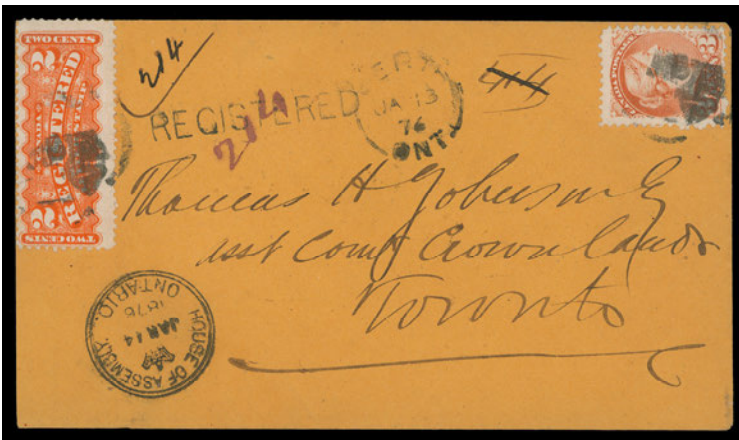 TWO CENTS
2 2
REGISTERED
CANADA STAMP
2 2
TWO CENTS
214
REGISTERED
214
JA 13
76
ONT
44
3
Thomas H Johnson Esq
asst Comr Crown Lands
Toronto
HOUSE OF ASSEMBLY
JAN 14
1876
ONTARIO.